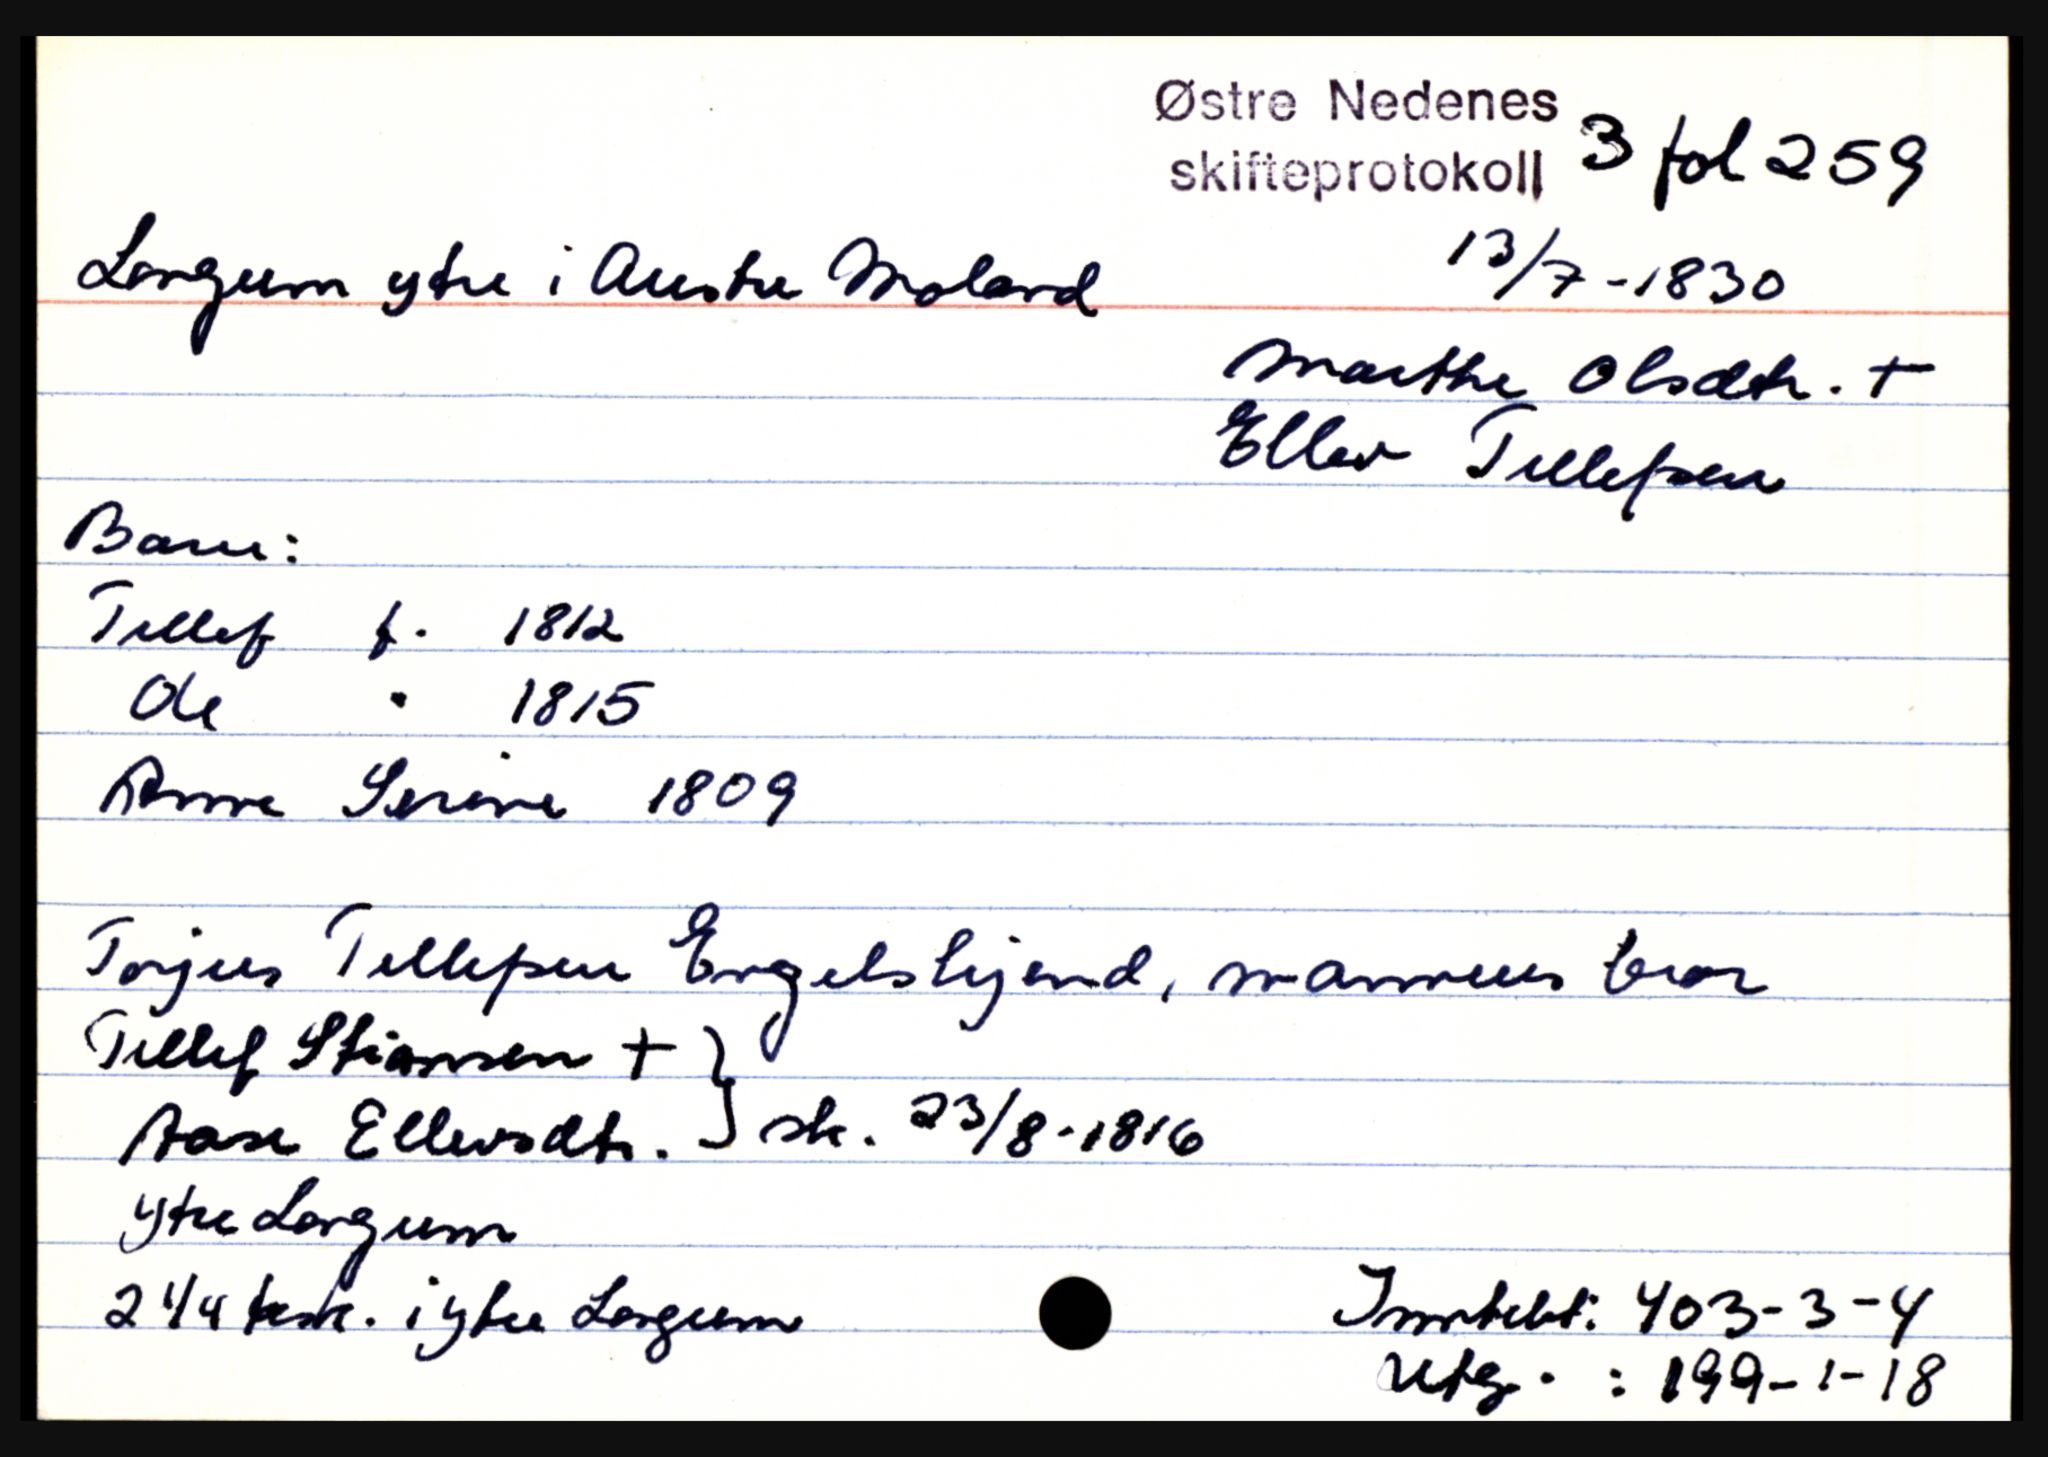 Østre Nedenes
skifteprotokoll 3 fol 259
Longum ytre i Austre Moland 13/7-1830
Marthe Olsdtr. +
Ellev Tellefsen
Barn:
Tellef f. 1812
Ole " 1815
Anne Serine 1809
Torjus Tellefsen Engelshjend, mannens bror
Tellef Stiansen +
Aase Ellevsdtr. } sk. 23/8-1816
ytre Longum
2 1/4 i ytre Longum
Inntekt: 403-3-4
Utg. : 199-1-18